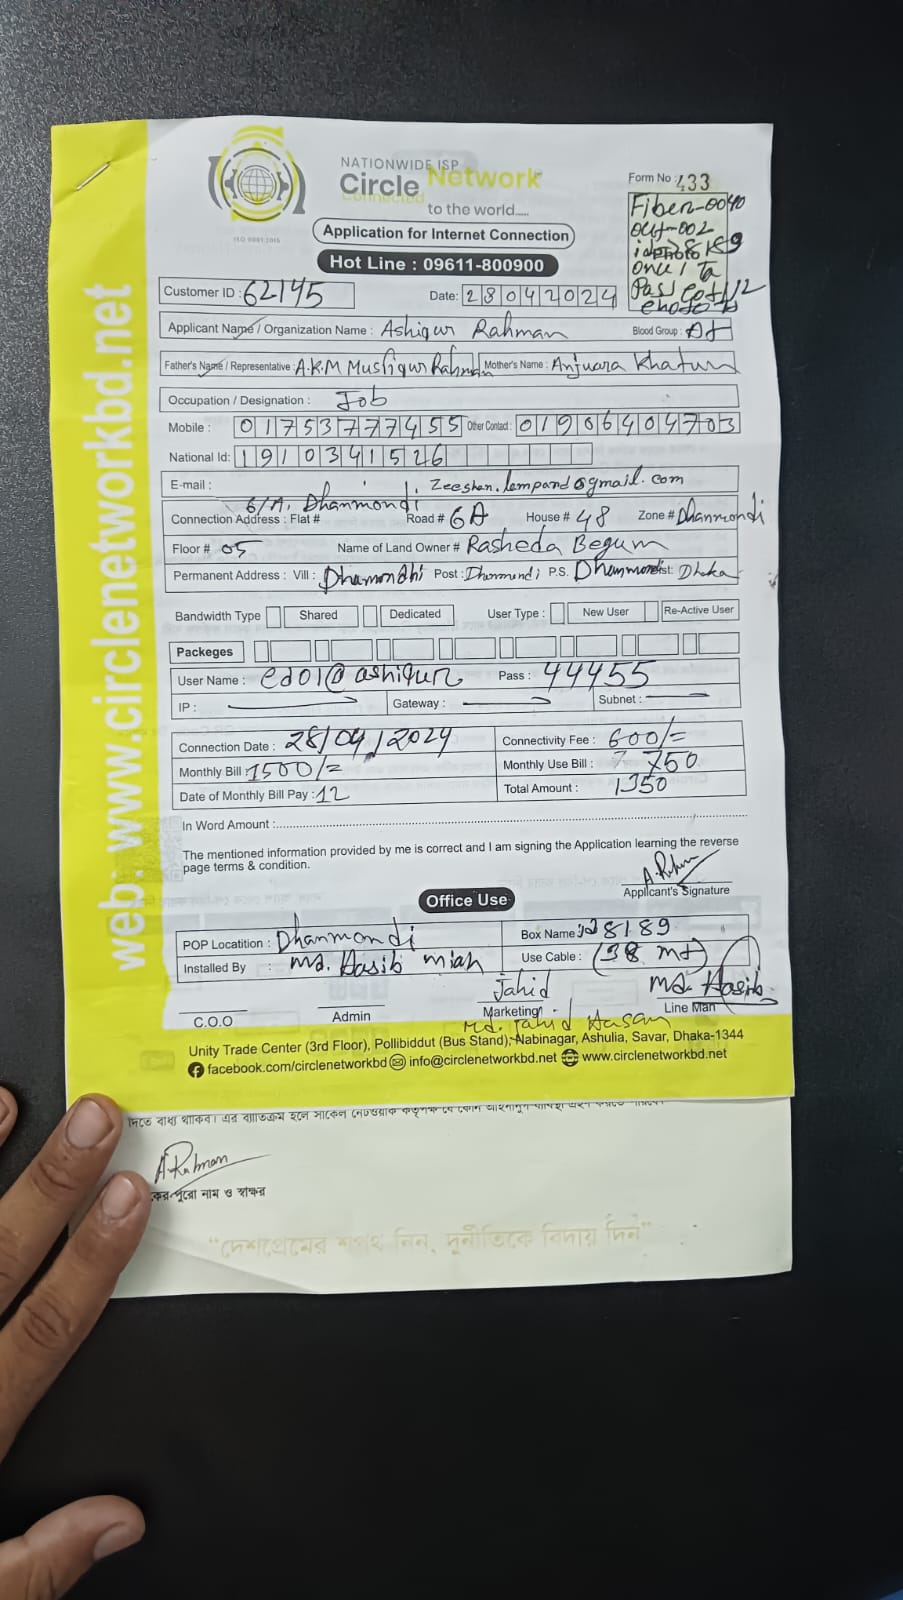 NATIONWIDE ISP
Circle Network
Connected
to the world.....
ISO 9001:2015
Form No : 433
Application for Internet Connection
Hot Line : 09611-800900
Fiber-0040
out-002
id 28189
Photo
onu 1 Ta
Customer ID : 62145
Date: 28042024
Applicant Name / Organization Name : Ashiqur Rahman
Blood Group : A+
Father's Name / Representative : A.K.M Musfiqur Rahman Mother's Name : Anjuara Khatun
Occupation / Designation : Job
Mobile : 01753777455 Other Contact : 01906404703
National Id: 1910341526
E-mail : zeeshan.lempard@gmail.com
6/A, Dhanmondi
Connection Address : Flat # Road # 6A House # 48 Zone # Dhanmondi
Floor # 05 Name of Land Owner # Rasheda Begum
Permanent Address : Vill : Dhamondhi Post : Dhanmondi P.S. Dhanmondi Dist: Dhaka
Bandwidth Type Shared Dedicated User Type : New User Re-Active User
Packeges
User Name : ed01@ashiqur Pass : 44455
IP : Gateway : Subnet :
Connection Date : 28/04/2024 Connectivity Fee : 600/=
Monthly Bill : 1500/= Monthly Use Bill : 750
Date of Monthly Bill Pay : 12 Total Amount : 1350
In Word Amount :
The mentioned information provided by me is correct and I am signing the Application learning the reverse
page terms & condition.
Applicant's Signature
Office Use
POP Locatition : Dhanmondi Box Name : id 28189
Installed By : Md. Hasib Miah Use Cable : (38 mt)
Jahid Md. Hasib
C.O.O Admin Marketing Line Man
Md. Jahid Hasan
Unity Trade Center (3rd Floor), Pollibiddut (Bus Stand), Nabinagar, Ashulia, Savar, Dhaka-1344
facebook.com/circlenetworkbd info@circlenetworkbd.net www.circlenetworkbd.net
web: www.circlenetworkbd.net
A Rahman
পুরো নাম ও স্বাক্ষর
"দেশপ্রেমের শপথ নিন, দুর্নীতিকে বিদায় দিন"